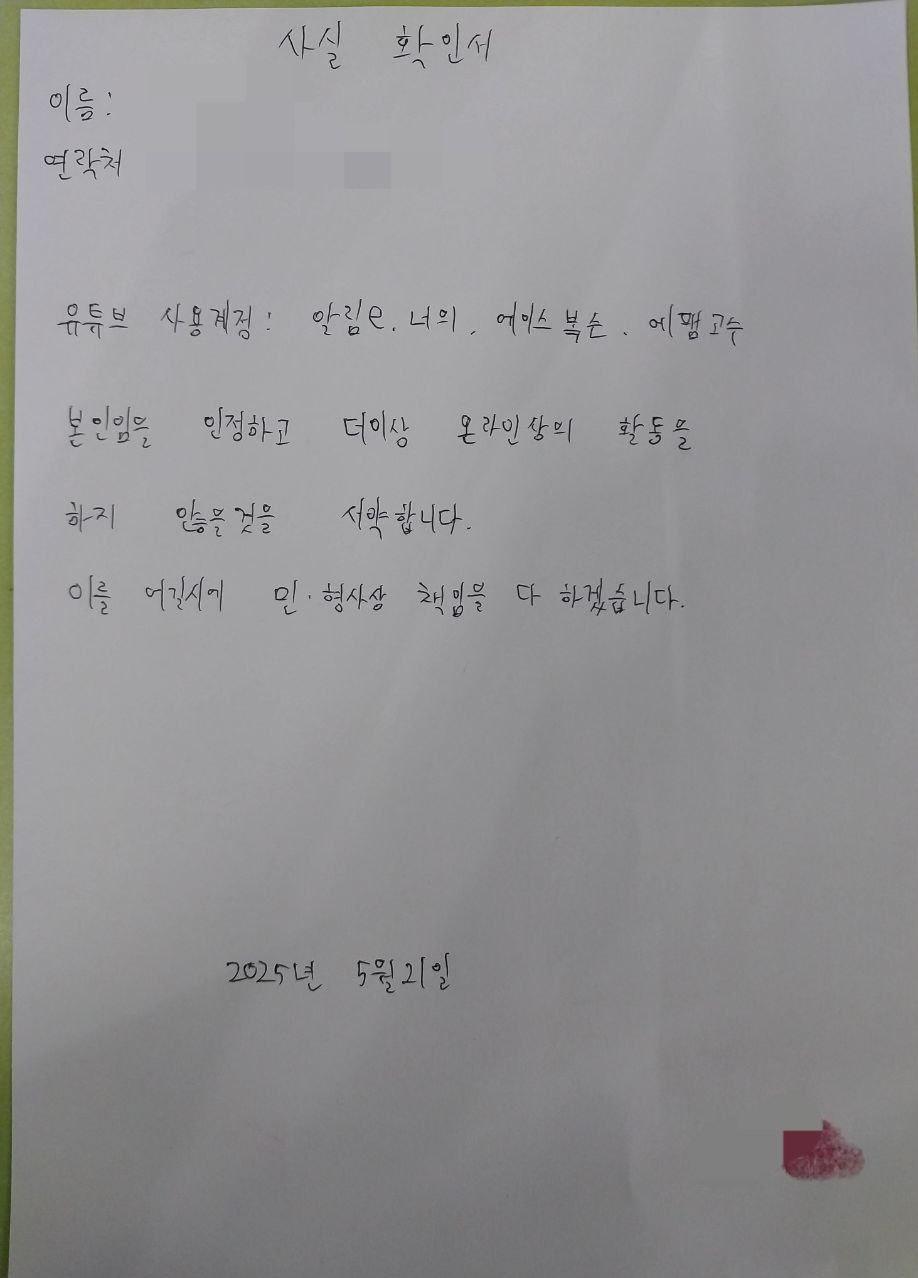 사실 확인서
이름:
연락처
유튜브 사용계정: 알림e. 너의. 에이스복순. 에펨고수
본인임을 인정하고 더이상 온라인상의 활동을
하지 않을것을 서약합니다.
이를 어길시에 민·형사상 책임을 다 하겠습니다.
2025년 5월21일